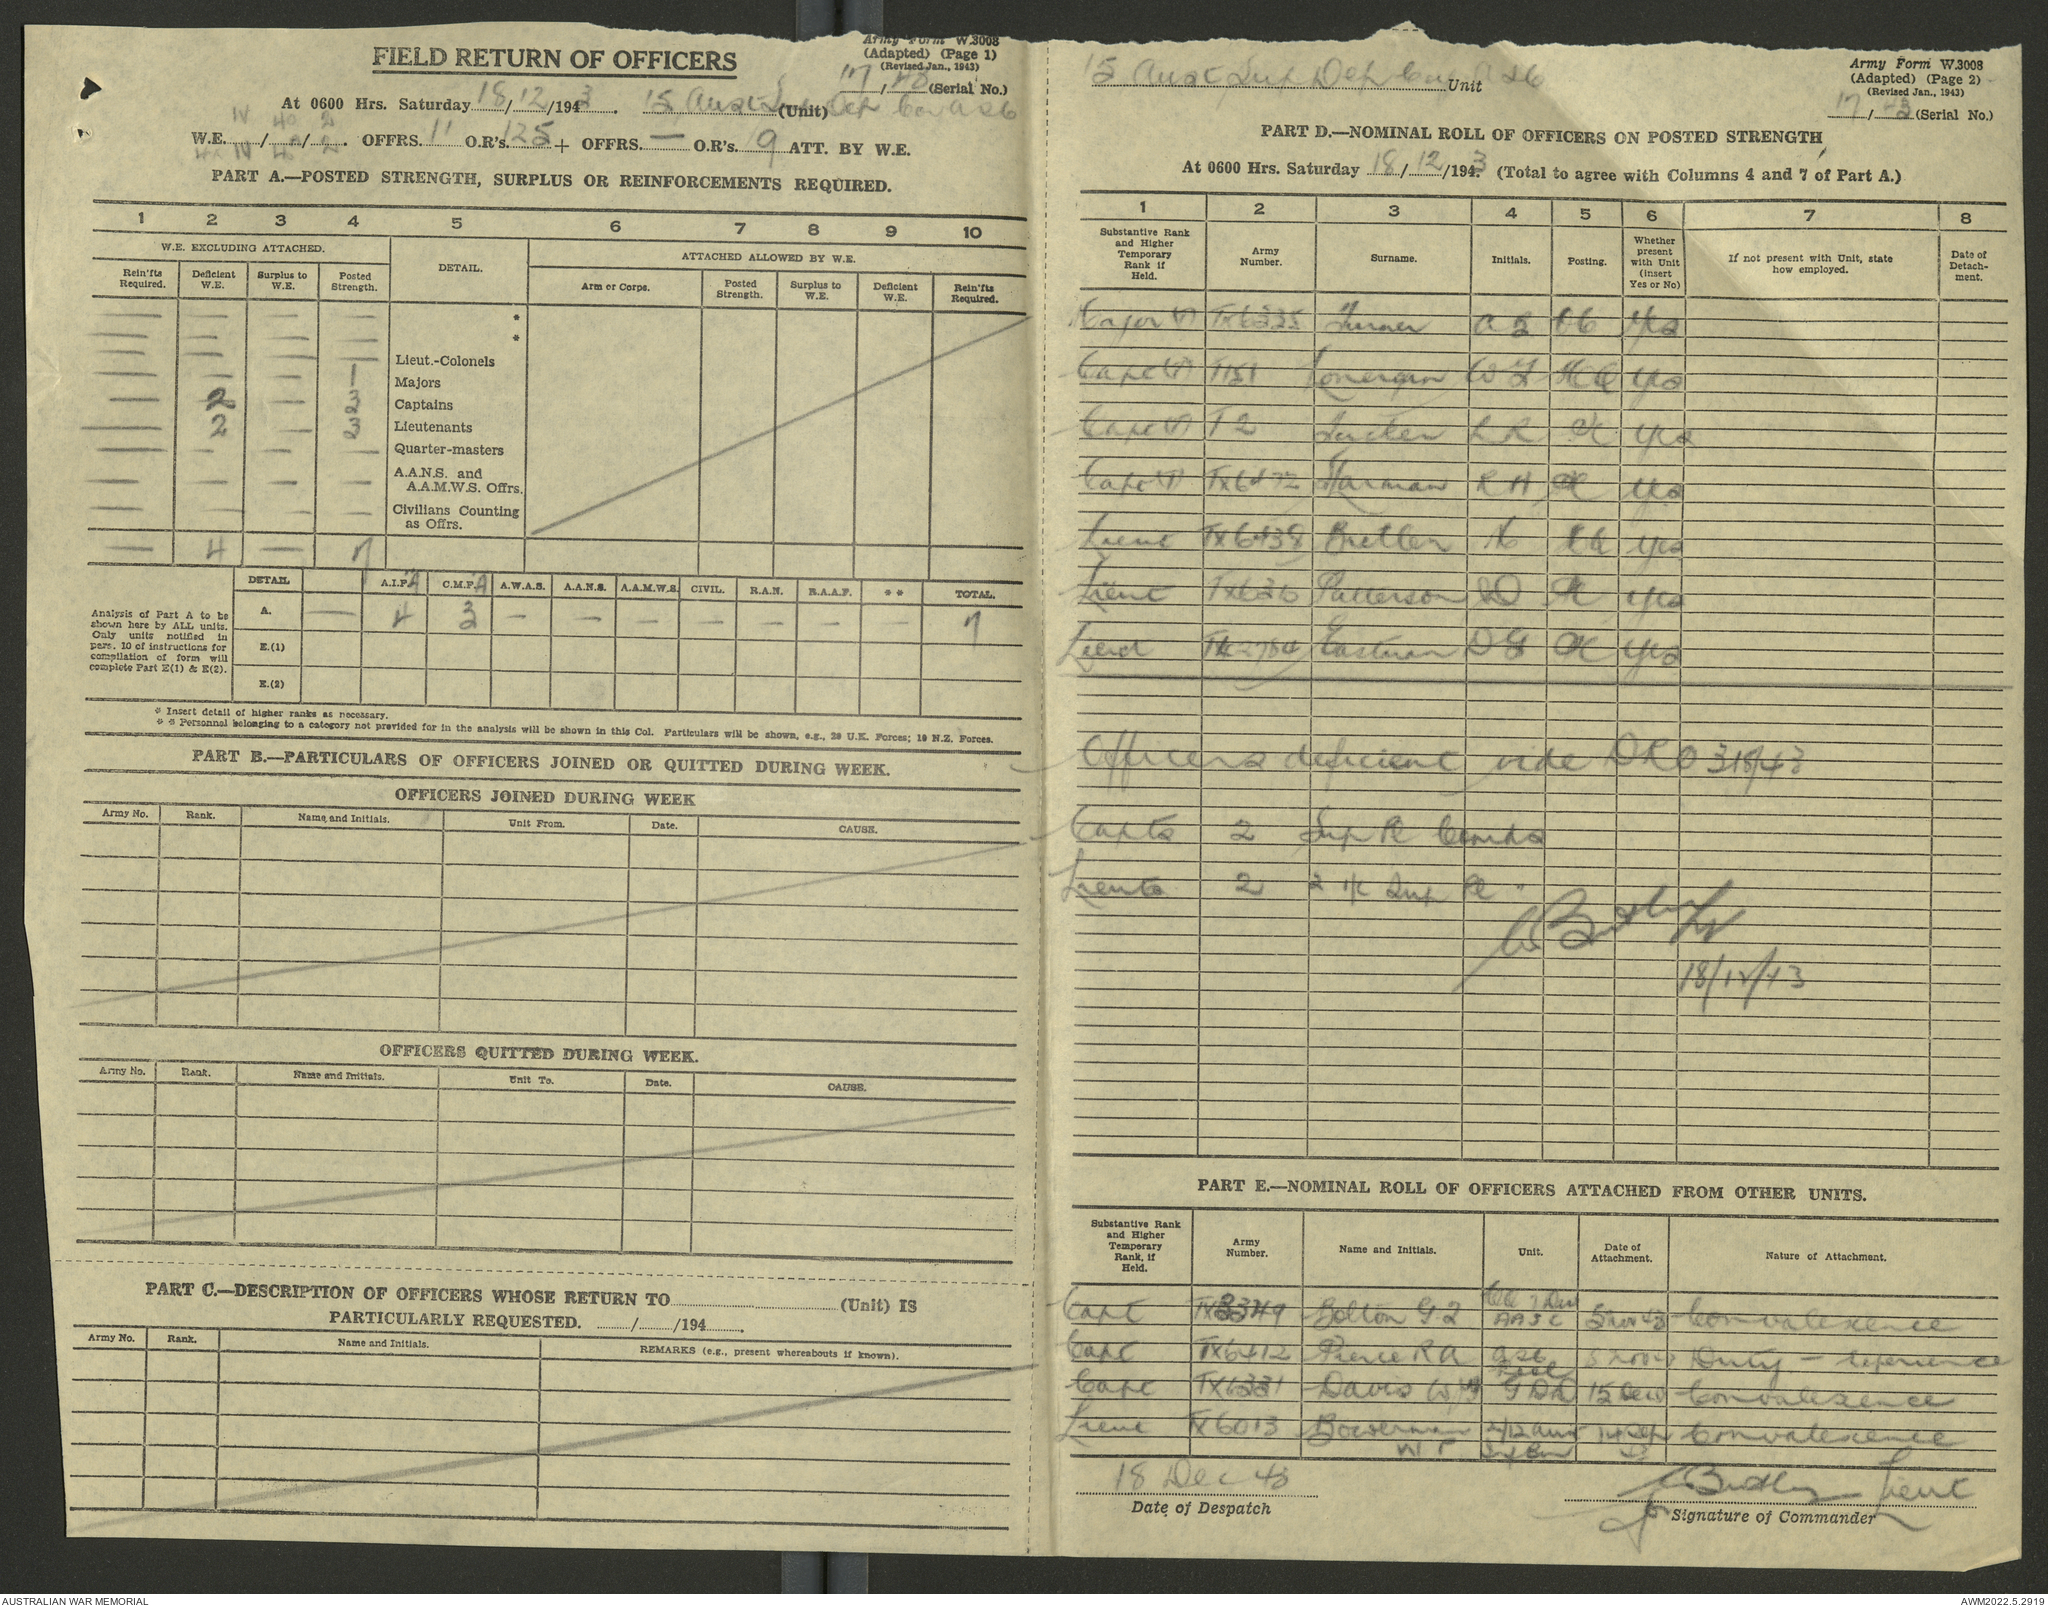 FIELD RETURN OF OFFICERS
Army Form W.3008
(Adapted) (Page 1)
(Revised Jan., 1943)
17/43 (Serial No.)
At 0600 Hrs. Saturday 18/12/1943. 15 Aust Sup Dep Coy AASC (Unit)
IV 40 2
W.E. / / . OFFRS. 11 O.R's. 125 + OFFRS. — O.R's. 9 ATT. BY W.E.
PART A.—POSTED STRENGTH, SURPLUS OR REINFORCEMENTS REQUIRED.
1 2 3 4 5 6 7 8 9 10
W.E. EXCLUDING ATTACHED. DETAIL. ATTACHED ALLOWED BY W.E.
Rein'fts Required. Deficient W.E. Surplus to W.E. Posted Strength. Arm or Corps. Posted Strength. Surplus to W.E. Deficient W.E. Rein'fts Required.
— — — — *
— — — — *
— — — — Lieut.-Colonels
— — — 1 Majors
— 2 — 3 Captains
— 2 — 3 Lieutenants
— — — — Quarter-masters
— — — — A.A.N.S. and A.A.M.W.S. Offrs.
— — — — Civilians Counting as Offrs.
— 4 — 7
DETAIL A.I.F. A C.M.F. A A.W.A.S. A.A.N.S. A.A.M.W.S. CIVIL. R.A.N. R.A.A.F. * * TOTAL.
Analysis of Part A to be shown here by ALL units. Only units notified in para. 10 of instructions for compilation of form will complete Part E(1) & E(2).
A. — 4 3 — — — — — — — 7
E.(1)
E.(2)
* Insert detail of higher ranks as necessary.
* * Personnel belonging to a category not provided for in the analysis will be shown in this Col. Particulars will be shown, e.g., 28 U.K. Forces; 19 N.Z. Forces.
PART B.—PARTICULARS OF OFFICERS JOINED OR QUITTED DURING WEEK.
OFFICERS JOINED DURING WEEK
Army No. Rank. Name and Initials. Unit From. Date. CAUSE.
OFFICERS QUITTED DURING WEEK.
Army No. Rank. Name and Initials. Unit To. Date. CAUSE.
PART C.—DESCRIPTION OF OFFICERS WHOSE RETURN TO (Unit) IS
PARTICULARLY REQUESTED. / /194 .
Army No. Rank. Name and Initials. REMARKS (e.g., present whereabouts if known).
15 Aust Sup Dep Coy AASC Unit
Army Form W.3008
(Adapted) (Page 2)
(Revised Jan., 1943)
17/43 (Serial No.)
PART D.—NOMINAL ROLL OF OFFICERS ON POSTED STRENGTH
At 0600 Hrs. Saturday 18/12/1943. (Total to agree with Columns 4 and 7 of Part A.)
1 2 3 4 5 6 7 8
Substantive Rank and Higher Temporary Rank if Held. Army Number. Surname. Initials. Posting. Whether present with Unit (insert Yes or No) If not present with Unit, state how employed. Date of Detachment.
Major (T) TX6335 Turner OC Yes
Capt (T) T151 Lonergan Yes
Capt (T) T2 R R Yes
Capt (T) TX6472 Harman R H Yes
Lieut TX6438 Yes
Lieut Patterson Yes
Lieut Eastman Yes
Officers deficient vide DRO 318/43
Capts 2 Sup Pl Comds
Lieuts 2 2 i/c Sup Pl "
18/12/43
PART E.—NOMINAL ROLL OF OFFICERS ATTACHED FROM OTHER UNITS.
Substantive Rank and Higher Temporary Rank, if Held. Army Number. Name and Initials. Unit. Date of Attachment. Nature of Attachment.
Capt Bolton AASC Convalescence
Capt TX6412 Pierce R A Duty – experience
Capt TX6331 Davis Convalescence
Lieut TX6013 Bowerman 2/12 Aust Convalescence
W T Inf Bn
18 Dec 43
Date of Despatch
Lieut
for Signature of Commander
AUSTRALIAN WAR MEMORIAL
AWM2022.5.2919